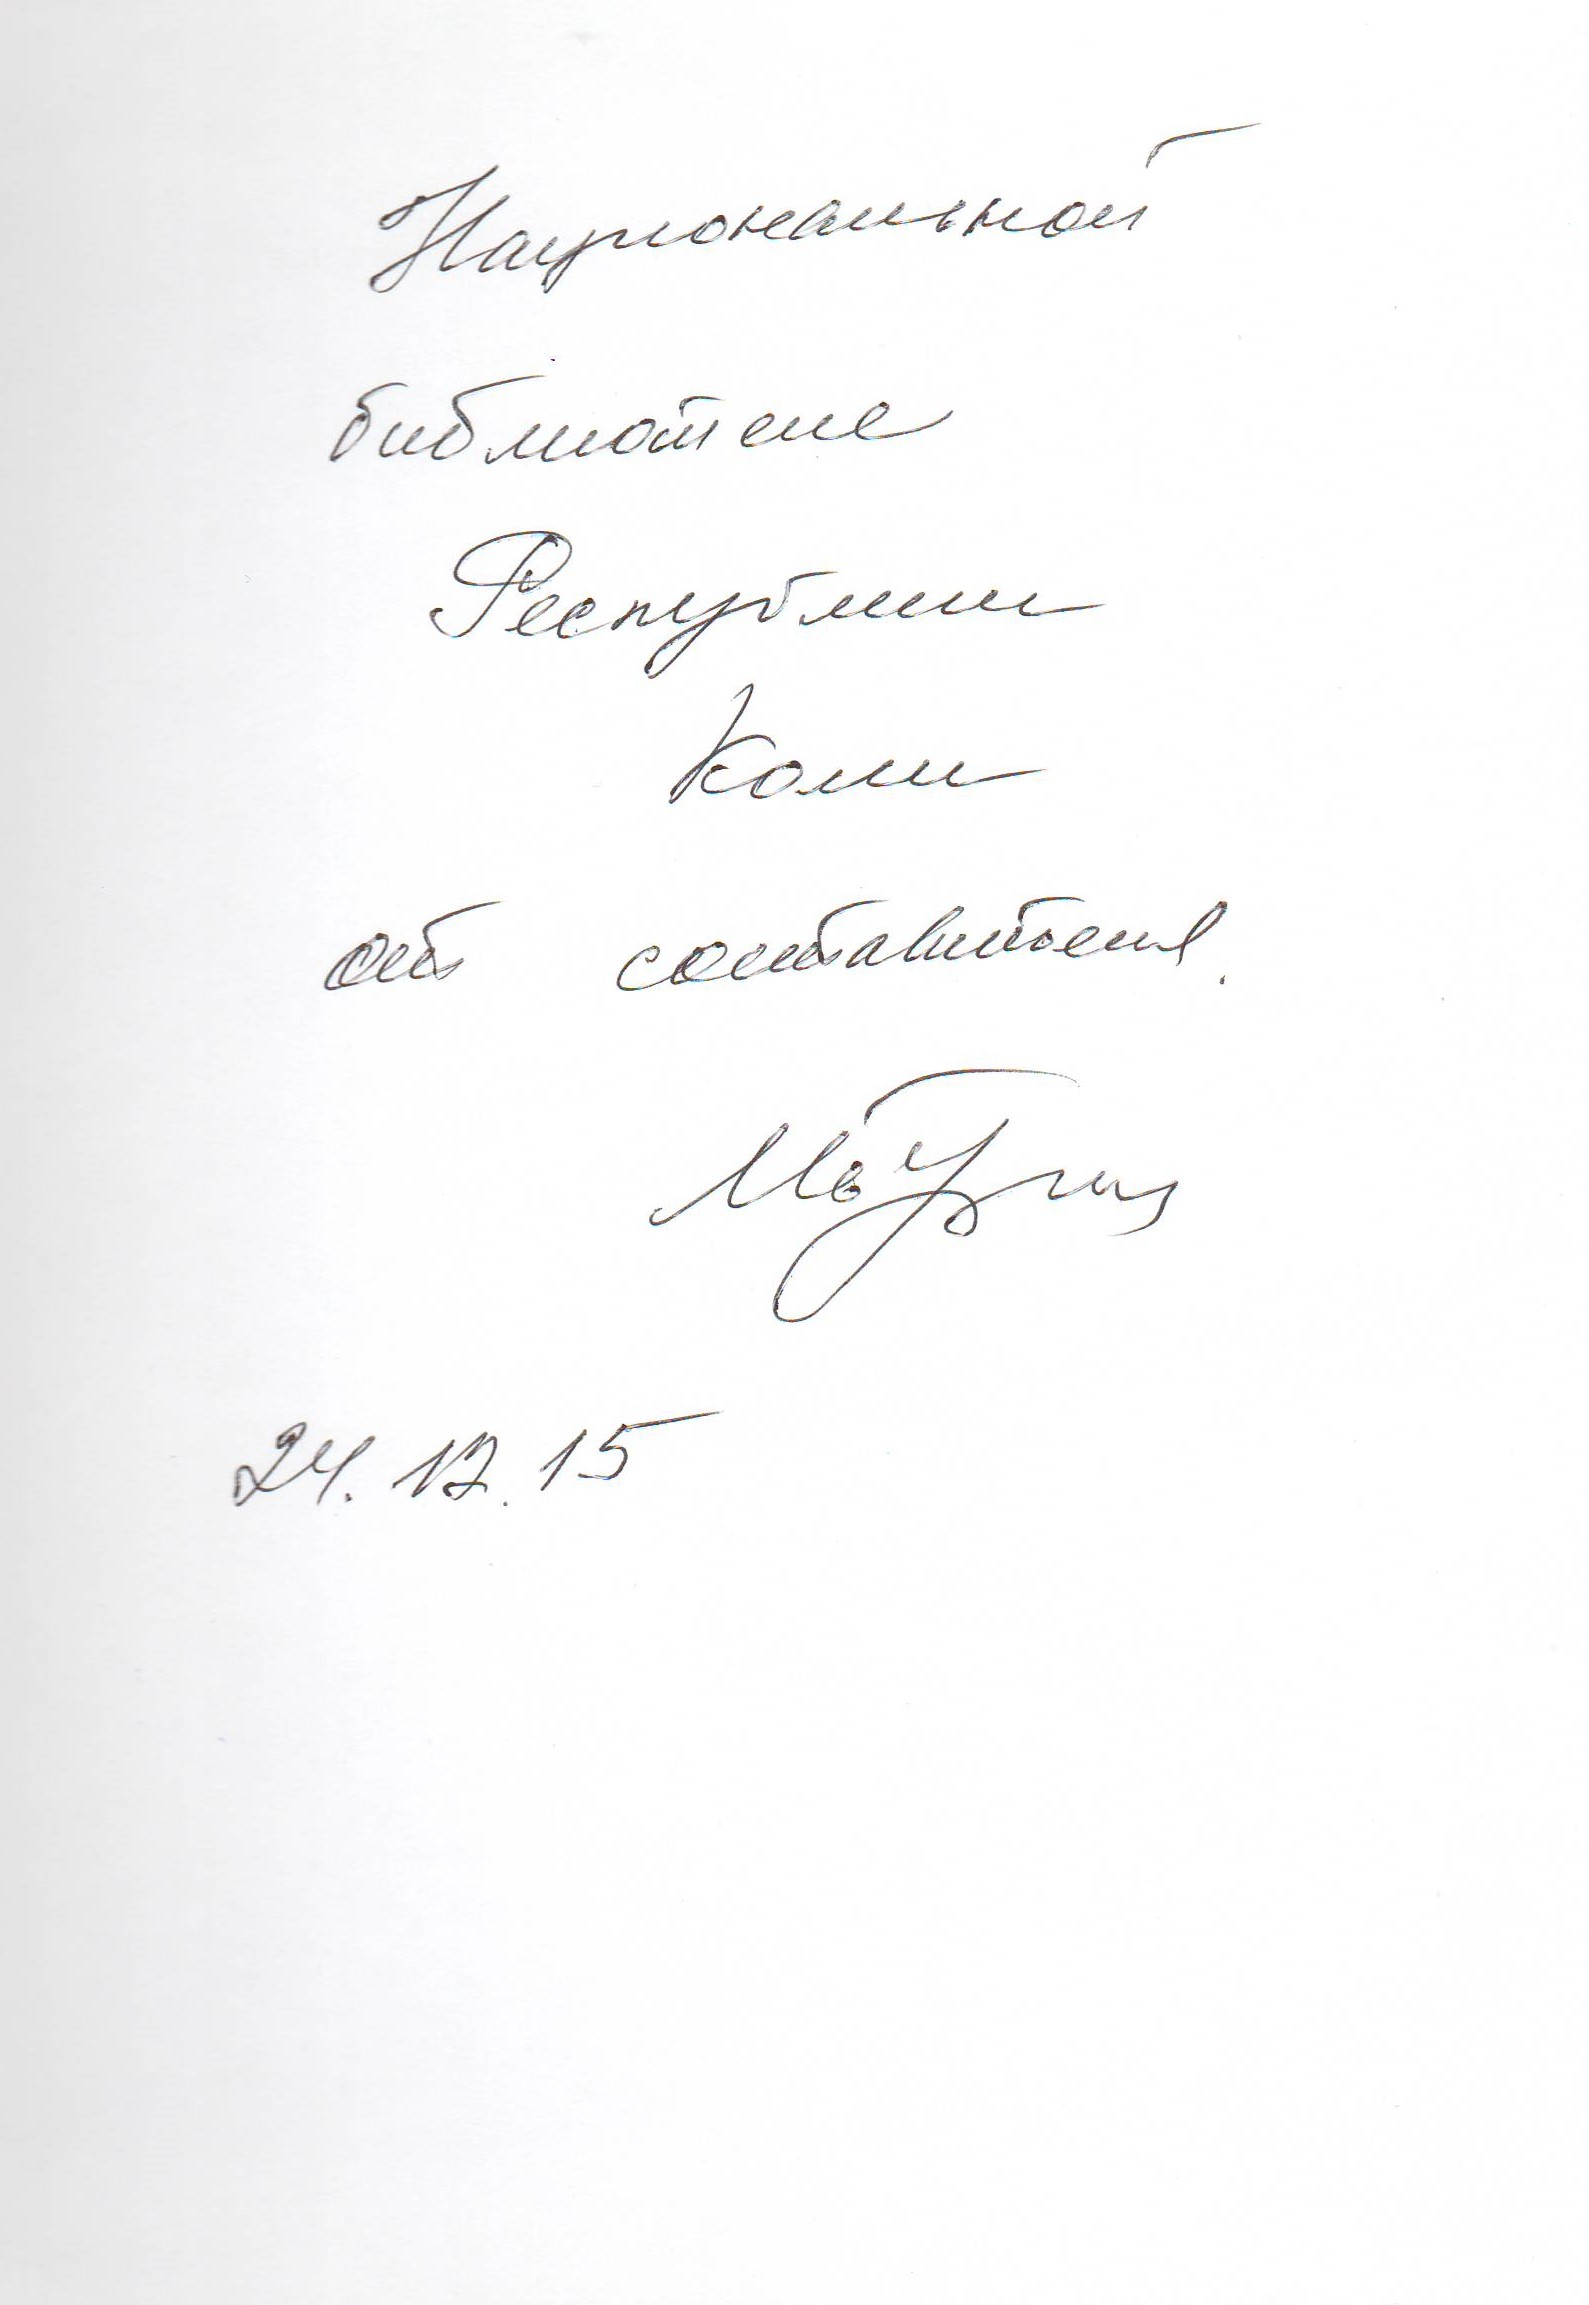 Национальной
библиотеке
Республики
Коми
от составителя.
24.12.15